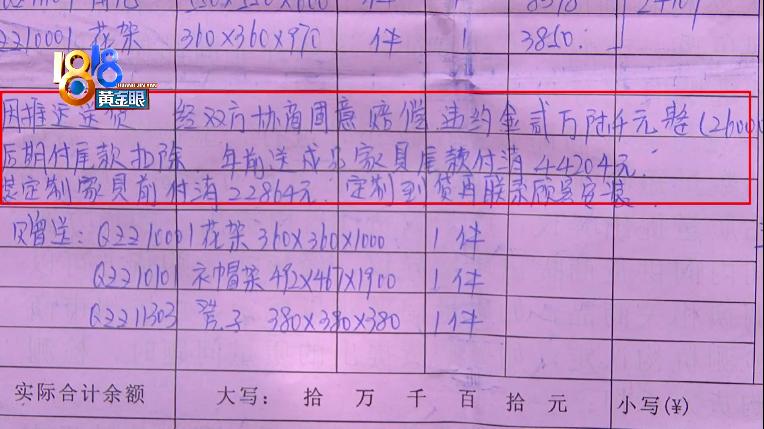 550X550X600 件 1 8378 2410
2210001 花架 360X360X970 件 1 3850.
1818 黄金眼
因推迟送货 经双方协商同意赔偿违约金贰万陆仟元整(26000
后期付尾款扣除 年前送成品家具尾款付清44204元.
装定制家具前付清22864元. 定制到货再联系顾客安装
赠送: QZ210001花架360X360X1000 1件
QZ210101 衣帽架492X467X1900 1件
QZ211303 凳子 380X380X380 1件
实际合计余额 大写: 拾 万 千 百 拾 元 小写(¥)